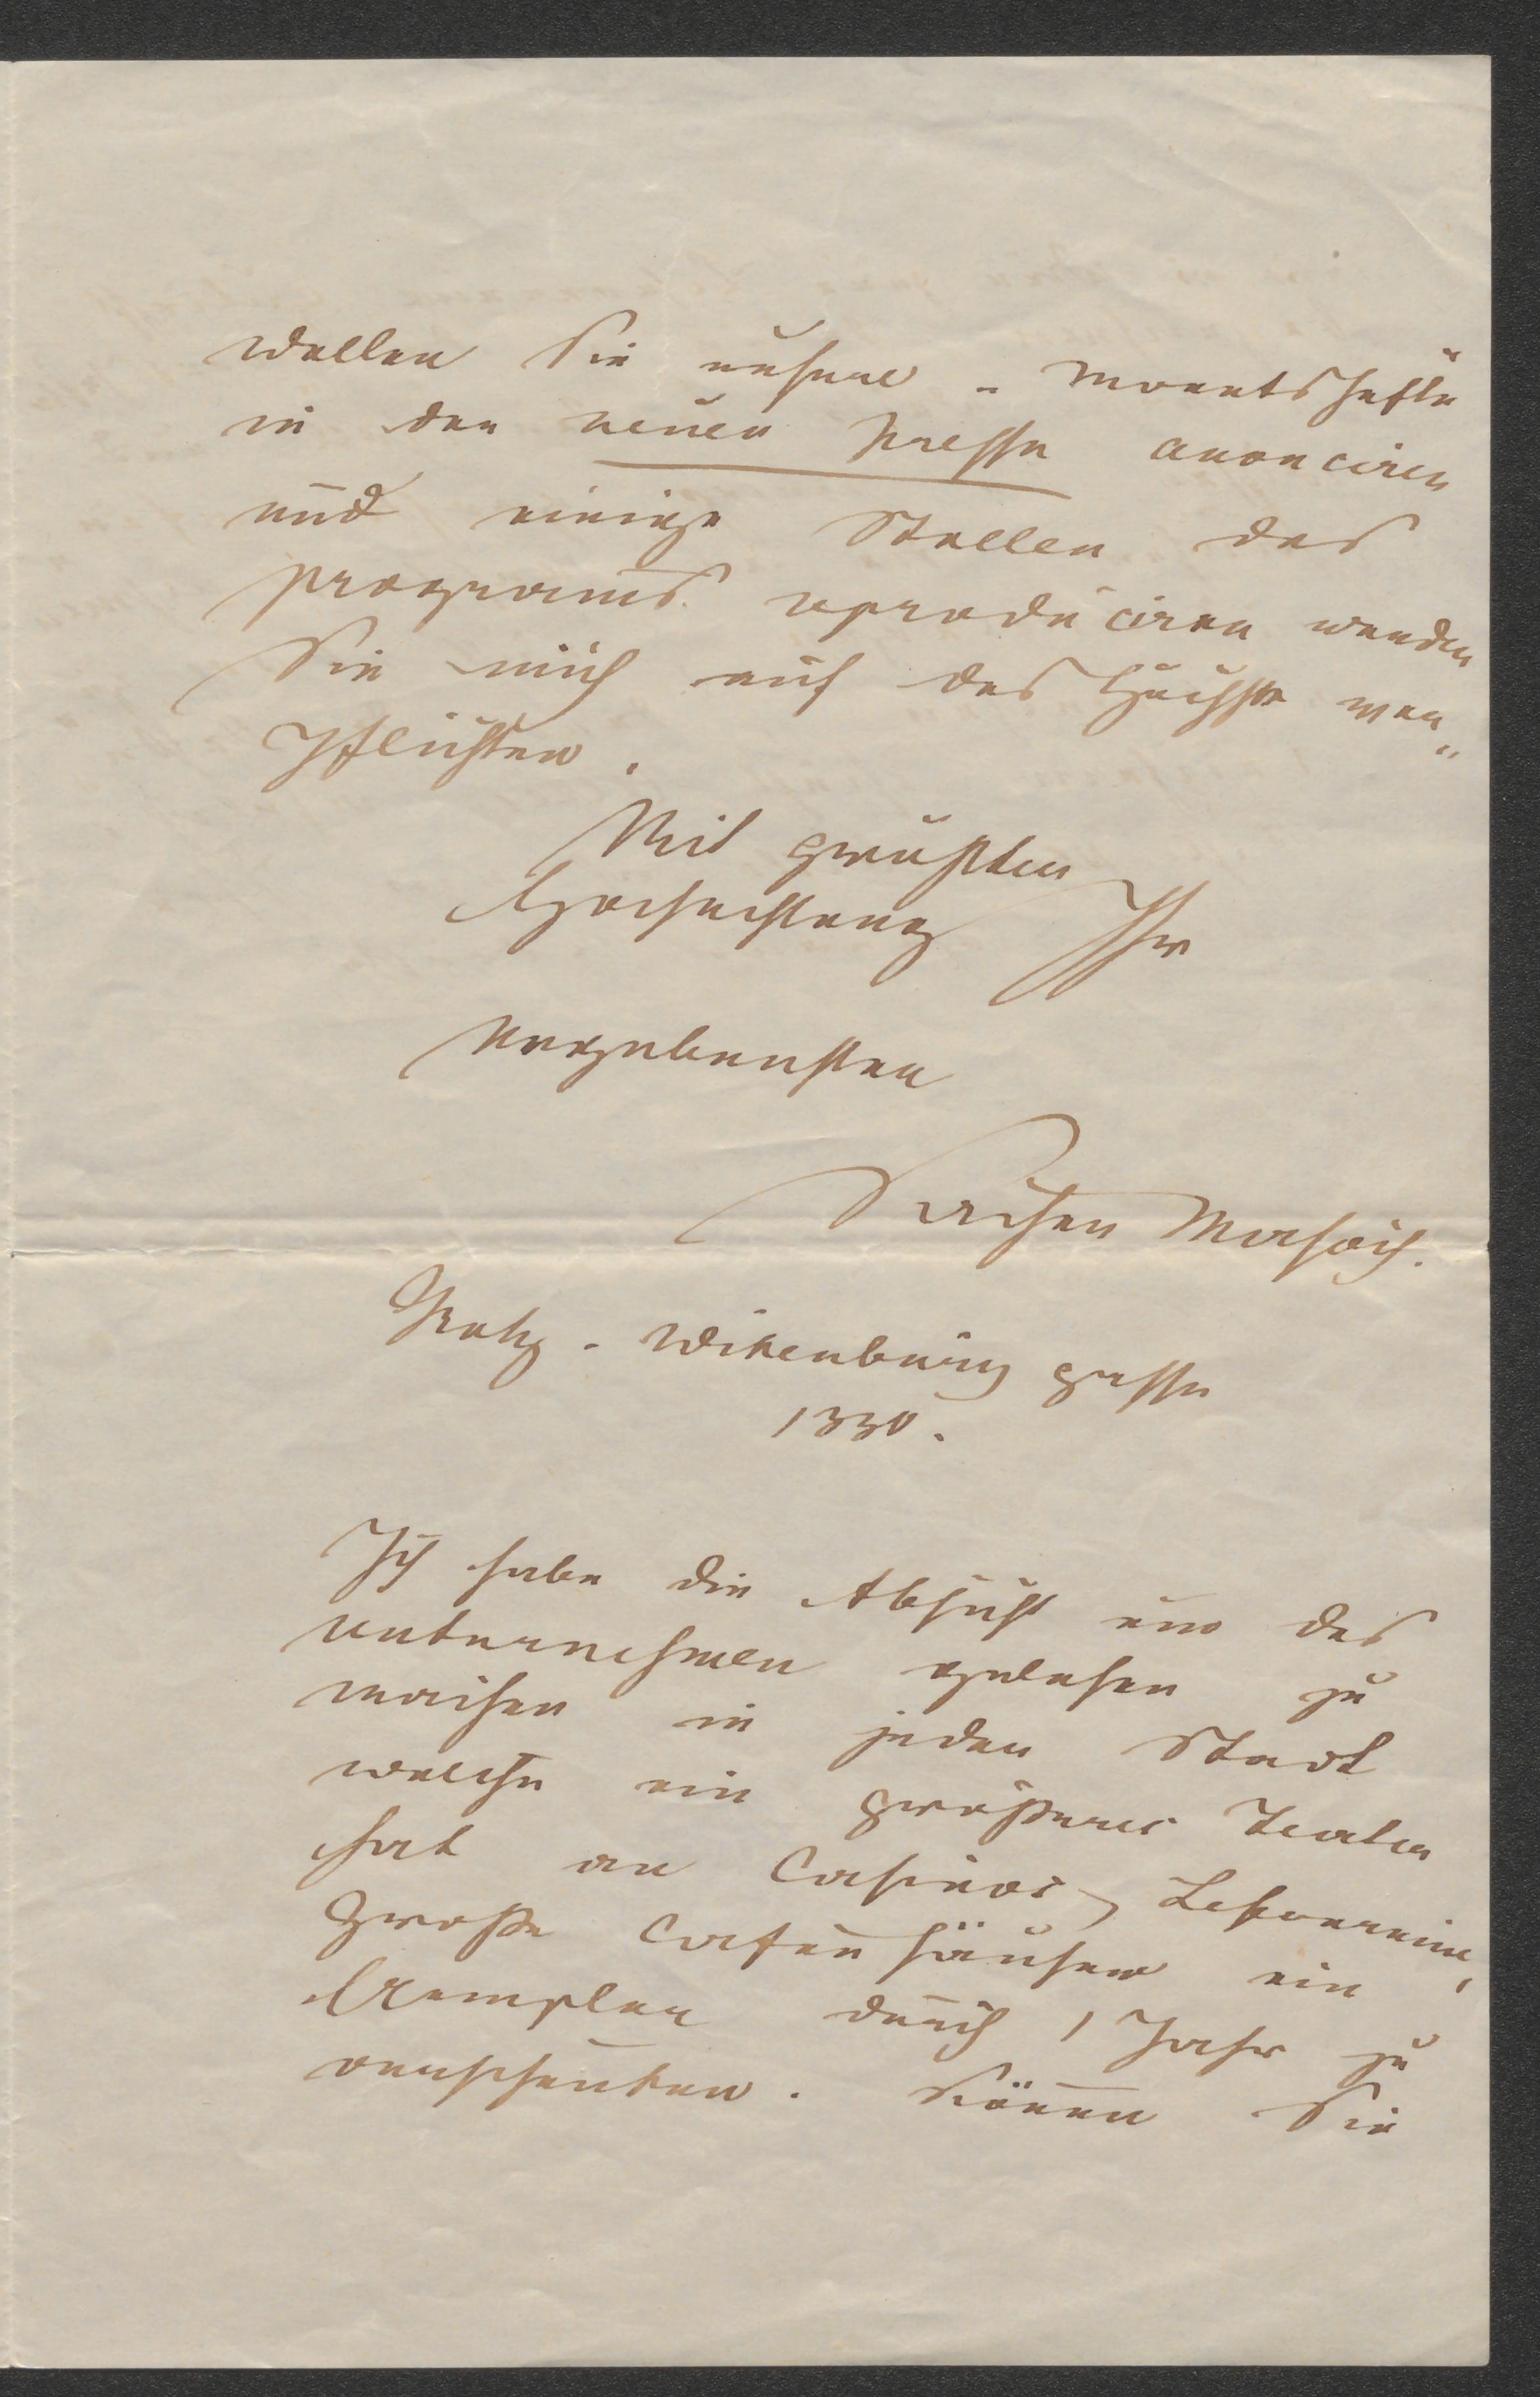 wollen Sie unsere - Monatshefte
in der neuen Presse anonciren
und einige Stellen des
Programms reproduciren werden
Sie mich auf das Höchste ver„
pflichten.
Mit größter
Hochachtung Ihr
ergebenster
Sacher Masoch.
Gratz - Wikenburggasse
1330.
Ich habe die Absicht um das
Unternehmen gelesen zu
machen in jeder Stadt
welche ein größeres Teater
hat an Casinos, Lesevereine,
große Cafeehäuser ein
Exemplar durch 1 Jahr zu
verschenken. Können Sie